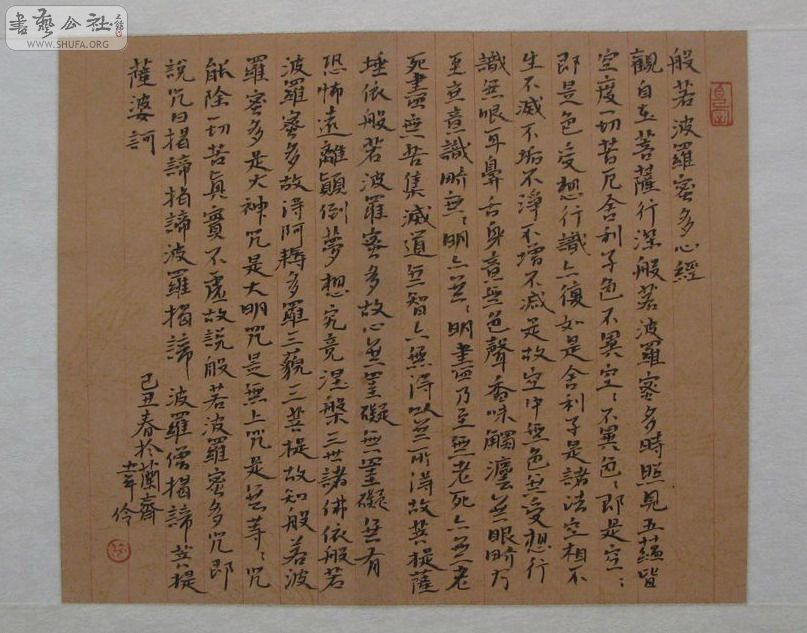 書藝公社
WWW.SHUFA.ORG
般若波羅蜜多心經
觀自在菩薩行深般若波羅蜜多時照見五蘊皆
空度一切苦厄舍利子色不異空〻不異色〻即是空〻
即是色受想行識亦復如是舍利子是諸法空相不
生不滅不垢不淨不增不減是故空中無色無受想行
識無眼耳鼻舌身意無色聲香味觸法無眼界乃
至無意識界無〻明亦無〻明盡乃至無老死亦無老
死盡無苦集滅道無智亦無得以無所得故菩提薩
埵依般若波羅蜜多故心無罣礙無罣礙無有
恐怖遠離顛倒夢想究竟涅槃三世諸佛依般若
波羅蜜多故得阿耨多羅三藐三菩提故知般若波
羅蜜多是大神咒是大明咒是無上咒是無等〻咒
能除一切苦真實不虛故說般若波羅蜜多咒即
說咒曰揭諦揭諦波羅揭諦 波羅僧揭諦菩提
薩婆訶
己丑春於蘭齋